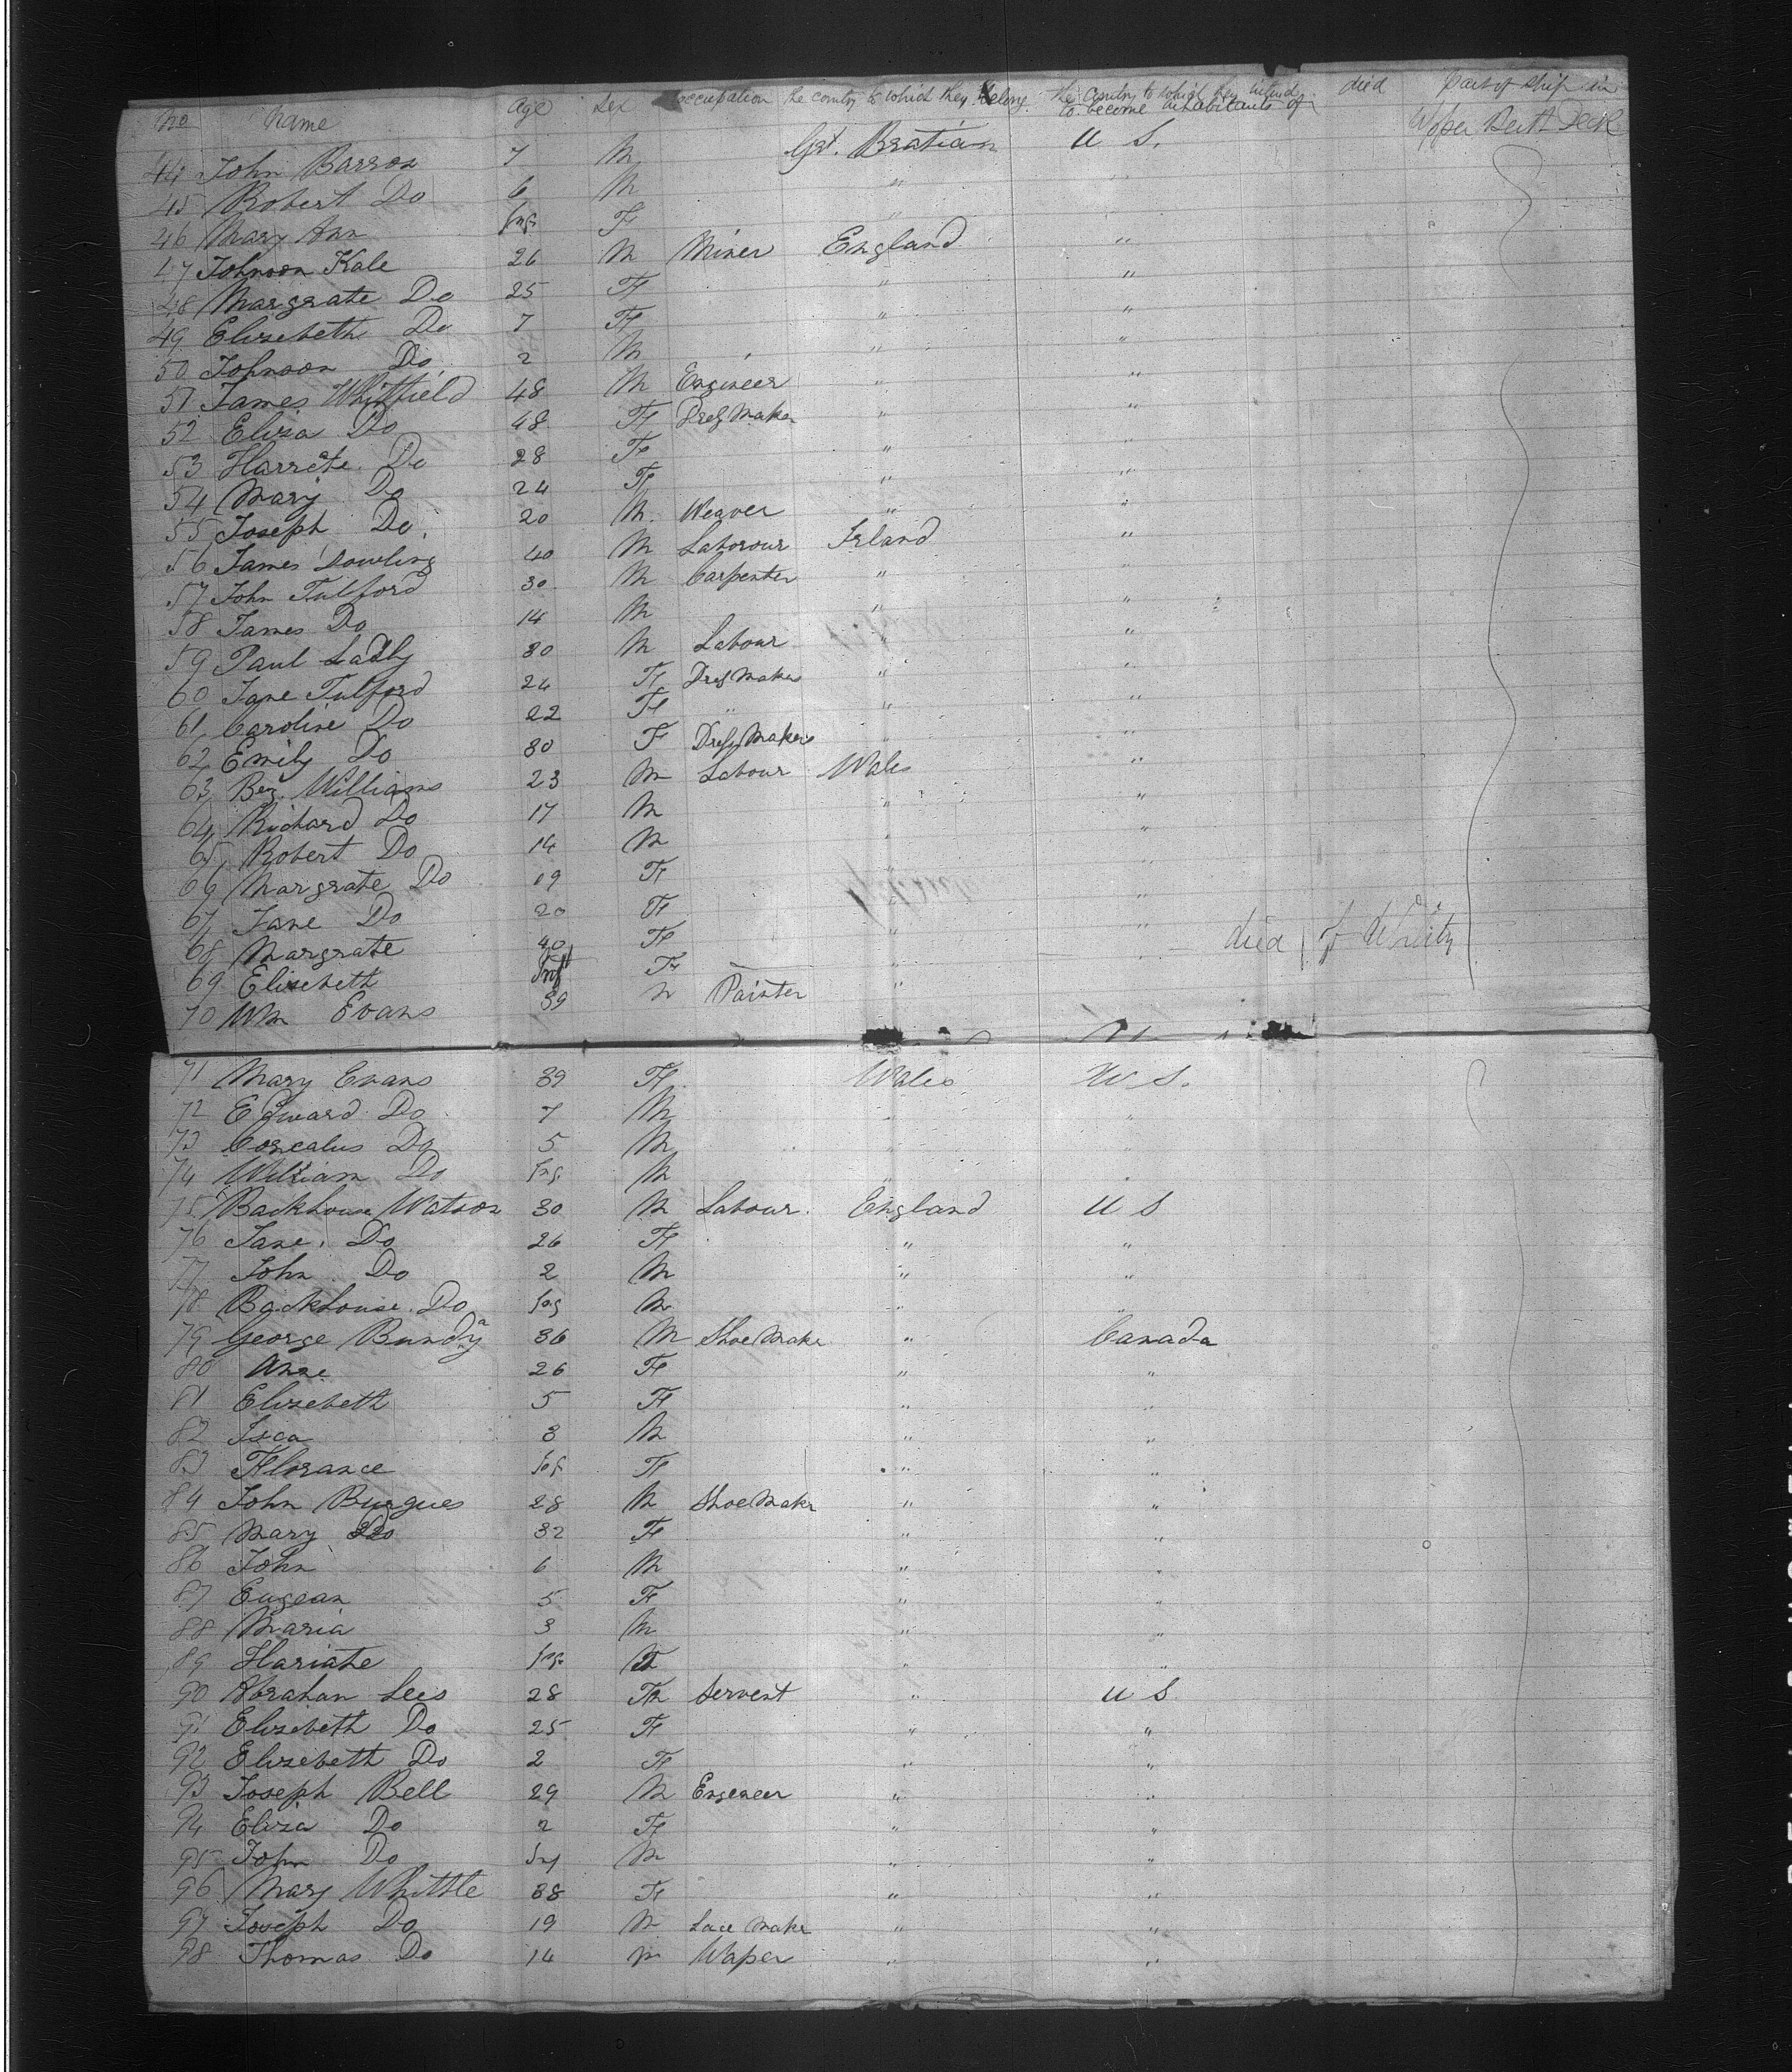 No Name Age Sex occupation the country to which they belong the Country to which they intend to become inhabitants of died Part of Ship in
Upper Berth Deck
44 John Barron 7 M Grt. Bratian U S.
45 Robert Do 6 M "
46 Mary Ann Inf. F "
47 Johnson Kale 26 M Miner England "
48 Margrate Do 25 F " "
49 Elisebeth Do 7 F " "
50 Johnson Do 2 M " "
51 James Whitfield 48 M Engineer " "
52 Elisa Do 48 F Dress Maker " "
53 Harriate Do 28 F " "
54 Mary Do 24 F " "
55 Joseph Do 20 M Weaver " "
56 James Dowling 40 M Laborour Irland "
57 John Tulford 30 M Carpenter " "
58 James Do 14 M " "
59 Paul 30 M Labour " "
60 Jane Tulford 24 F Dress Maker " "
61 Caroline Do 22 F " " "
62 Emily Do 30 F Dress Maker " "
63 Ben Williams 23 M Labour Wales "
64 Richard Do 17 M " "
65 Robert Do 14 M " "
66 Margrate Do 19 F " "
67 Jane Do 20 F " "
68 Margrate 40 F " "
69 Elisebeth Inft F " " died of
70 Wm Evans 39 M Painter "
71 Mary Evans 39 F Wales U S.
72 Edward Do 7 M " "
73 Do 5 M " "
74 William Do Inf. M " "
75 Backhouse Watson 30 M Labour. England U S
76 Jane. Do 26 F " "
77 John Do 2 M " "
78 Backhouse. Do Inf M " "
79 George Bundy 36 M Shoe Maker " Canada
80 Anne 26 F " "
81 Elisebeth 5 F " "
82 Isca 3 M " "
83 Florance Inf F " "
84 John Burgues 28 M Shoe Maker " "
85 Mary Do 32 F " "
86 John 6 M " "
87 Eugean 5 F " "
88 Maria 3 M " "
89 Hariate Inf. " "
90 Abraham Lees 28 M Servent " U S
91 Elisebeth Do 25 F " "
92 Elisebeth Do 2 F " "
93 Joseph Bell 29 M Engeneer " "
94 Elisa Do 2 F " "
95 John Do Inf M " "
96 Mary Whittle 38 F " "
97 Joseph Do 19 M Lace Maker " "
98 Thomas Do 14 M Waper " "